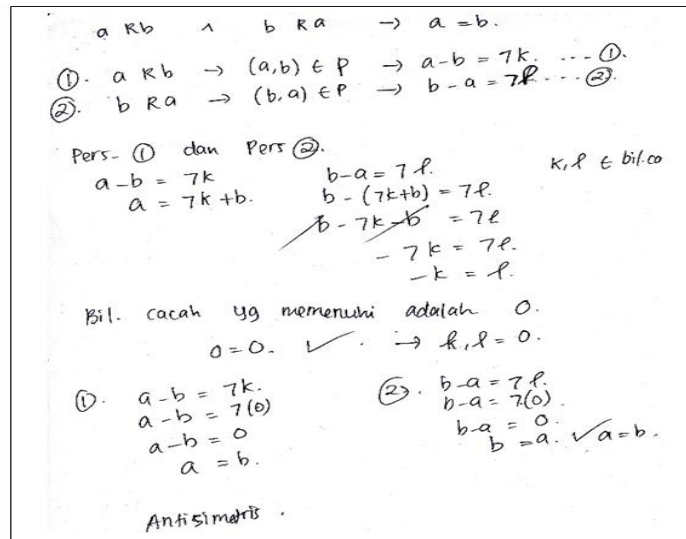 a R b ∧ b R a → a = b.
①. a R b → (a,b) ∈ P → a-b = 7k. ---- ①.
②. b R a → (b,a) ∈ P → b-a = 7ℓ. --- ②.
Pers- ① dan Pers ②.
a-b = 7k
a = 7k + b.
b-a = 7ℓ.
b - (7k+b) = 7ℓ.
b - 7k - b = 7ℓ
- 7k = 7ℓ.
-k = ℓ.
k, ℓ ∈ bil.ca
Bil. cacah yg memenuhi adalah 0.
0 = 0. ✓. → k, ℓ = 0.
①. a-b = 7k.
a-b = 7(0)
a-b = 0
a = b.
②. b-a = 7ℓ.
b-a = 7(0).
b-a = 0.
b = a. ✓ a = b.
Antisimetris.